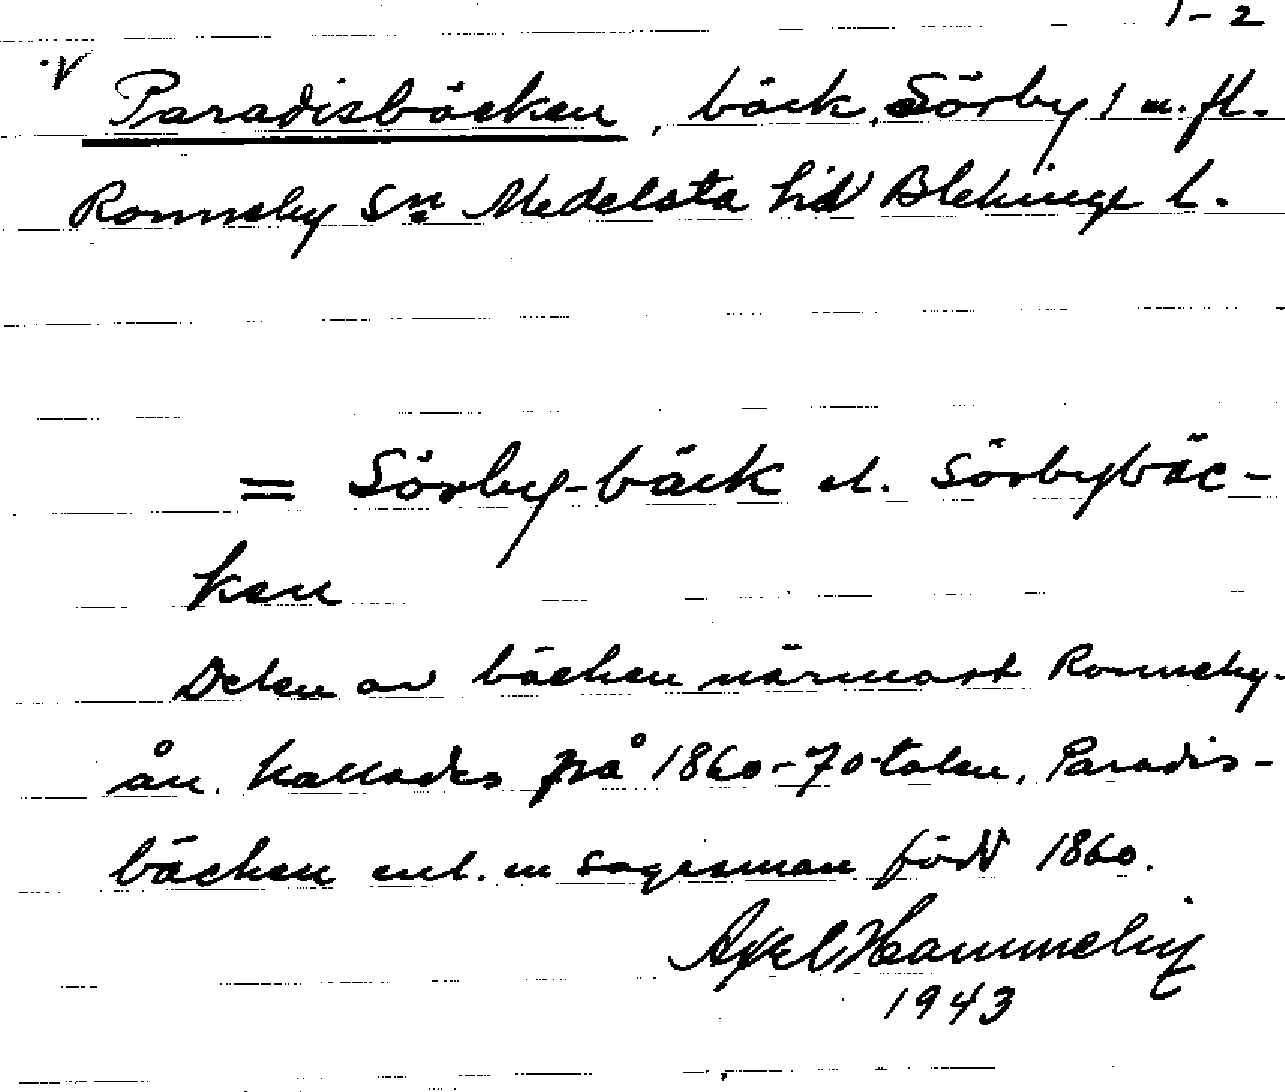 1-2
V
Paradisbäcken, bäck, Sörby 1 m.fl.
Ronneby Sn Medelsta hd Blekinge l.
= Sörby-bäck el. Sörbybäc-
ken
Delen av bäcken närmast Ronneby-
ån kallades på 1860-70-talen, Paradis-
bäcken enl. en sagesman född 1860.
Axel Hammelin
1943